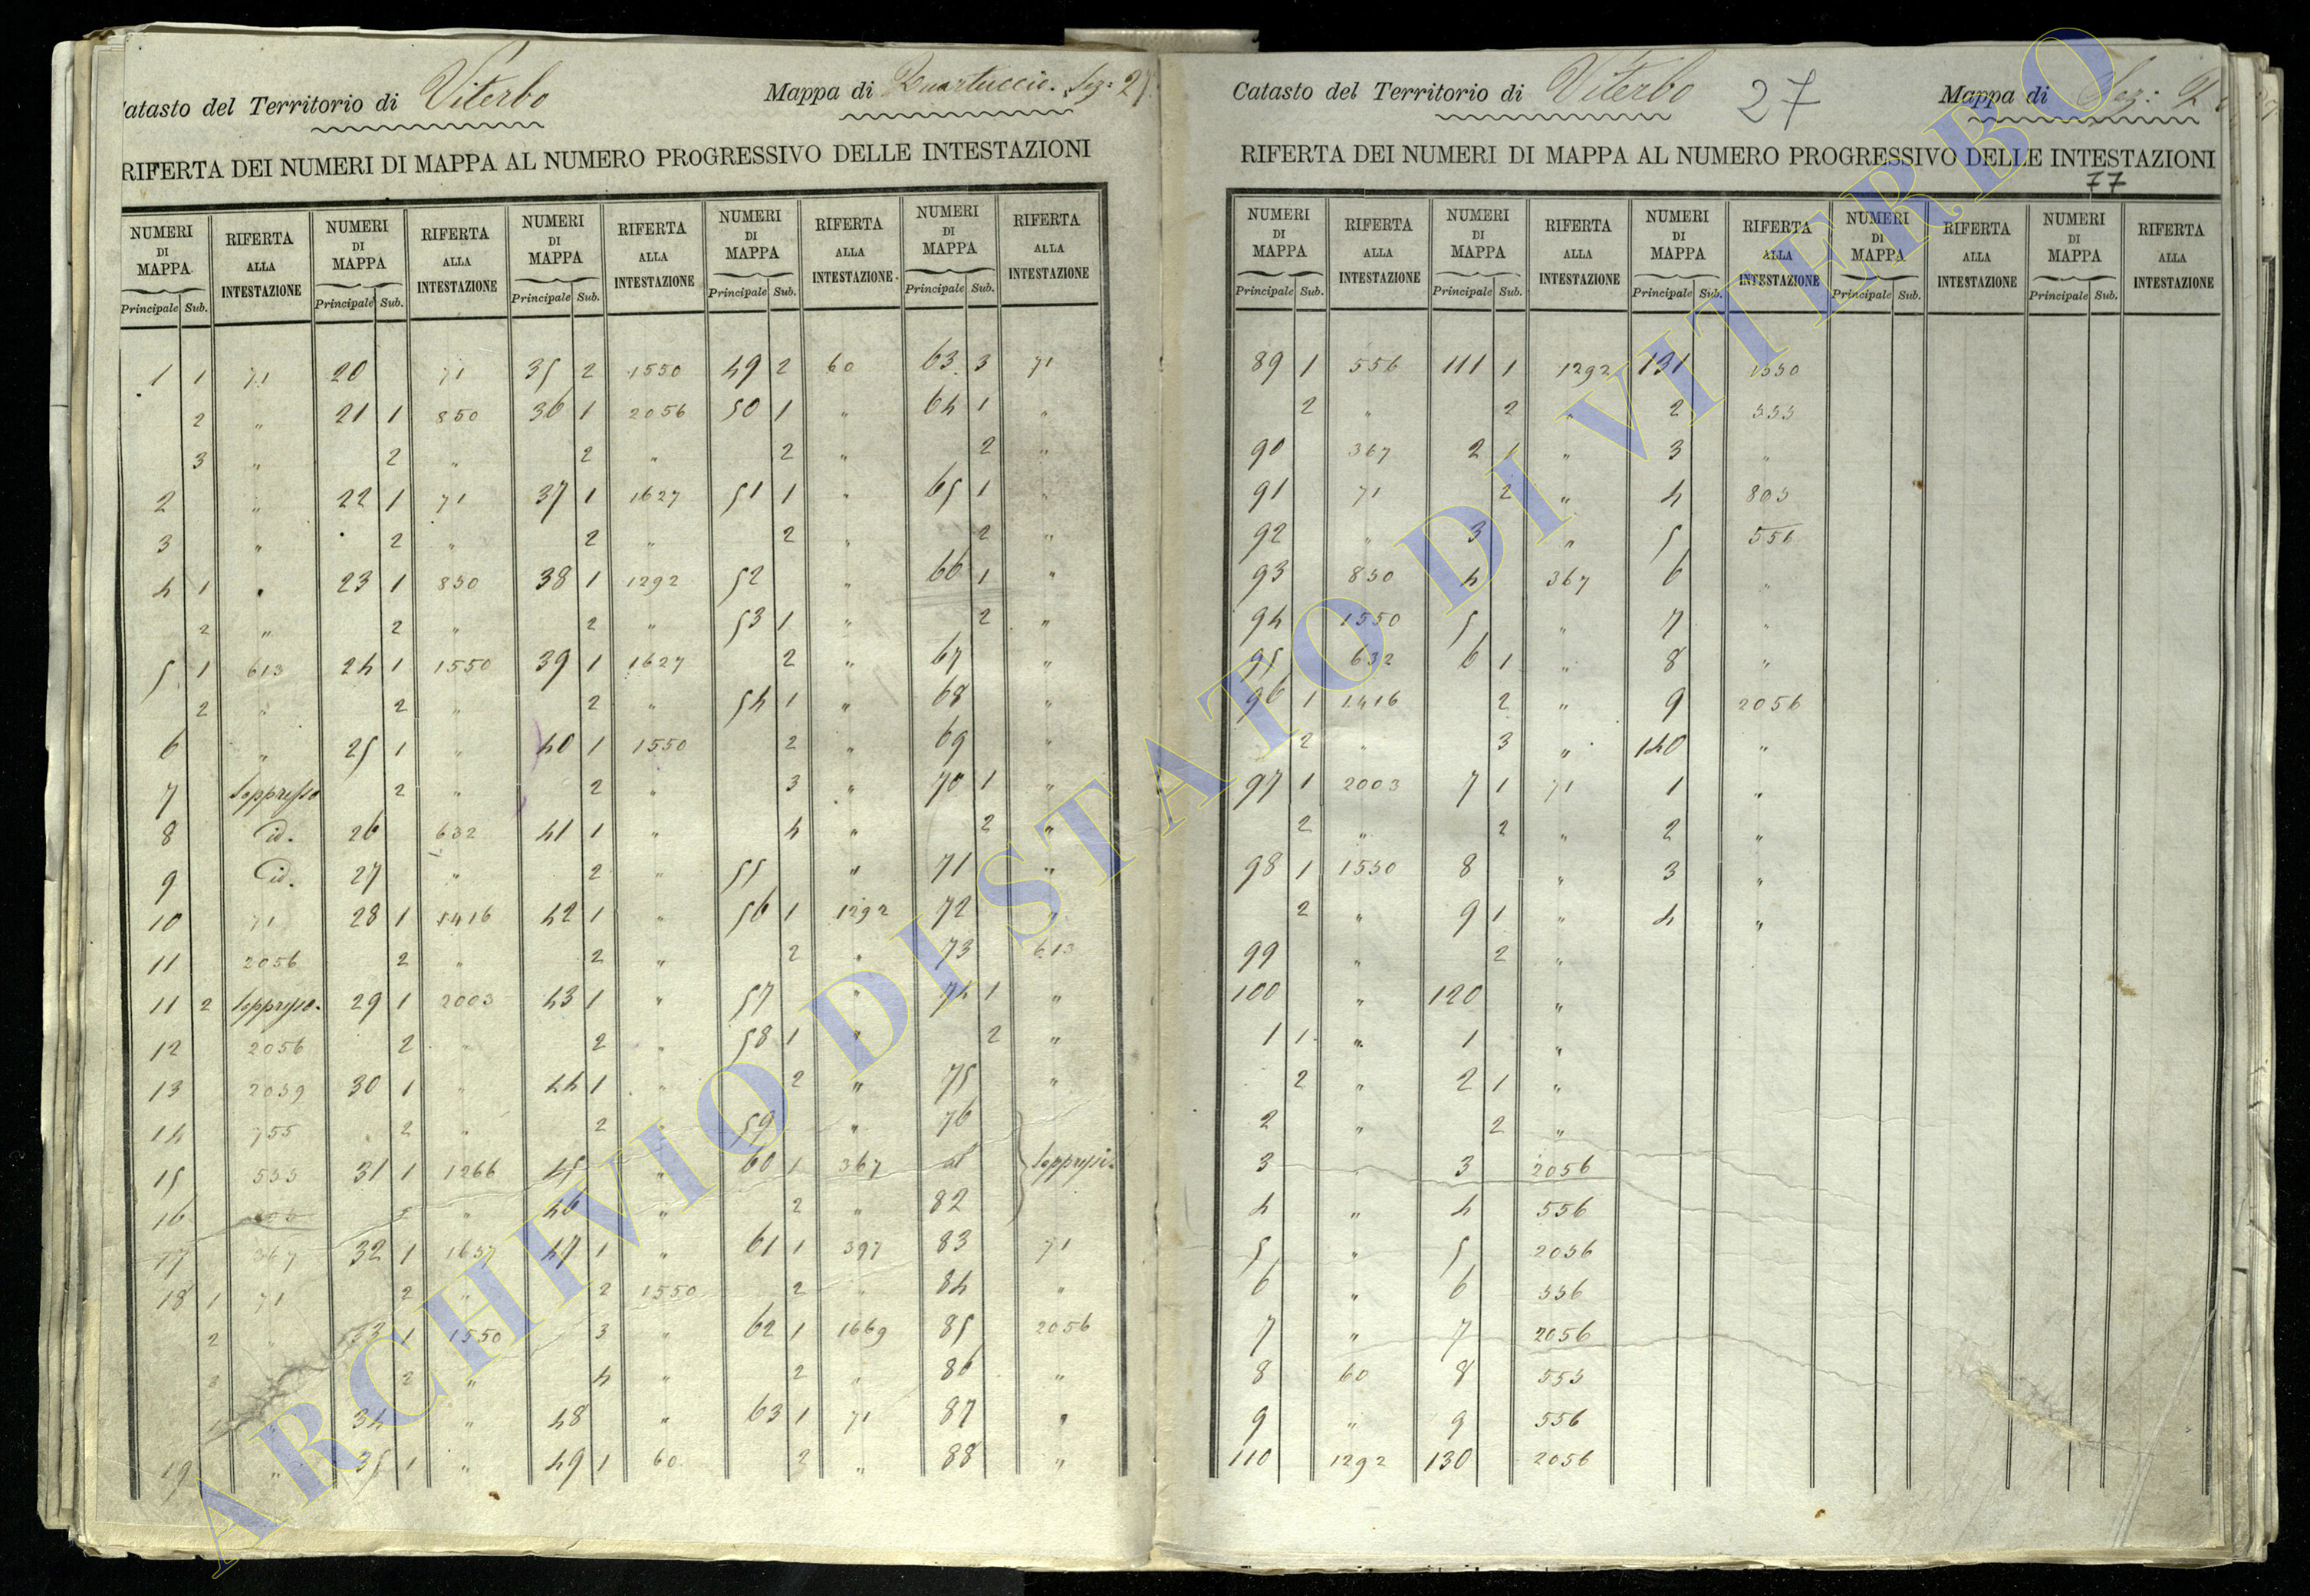 Catasto del Territorio di Viterbo Mappa di Quartuccio. Sez: 27
RIFERTA DEI NUMERI DI MAPPA AL NUMERO PROGRESSIVO DELLE INTESTAZIONI
NUMERI DI MAPPA RIFERTA ALLA INTESTAZIONE NUMERI DI MAPPA RIFERTA ALLA INTESTAZIONE NUMERI DI MAPPA RIFERTA ALLA INTESTAZIONE NUMERI DI MAPPA RIFERTA ALLA INTESTAZIONE NUMERI DI MAPPA RIFERTA ALLA INTESTAZIONE
Principale Sub. Principale Sub. Principale Sub. Principale Sub. Principale Sub.
1 1 71 20 71 35 2 1550 49 2 60 63 3 71
2 „ 21 1 850 36 1 2056 50 1 „ 64 1 „
3 „ 2 „ 2 „ 2 „ 2 „
2 „ 22 1 71 37 1 1627 51 1 „ 65 1 „
3 „ 2 „ 2 „ 2 „ 2 „
4 1 „ 23 1 850 38 1 1292 52 „ 66 1 „
2 „ 2 „ 2 „ 53 1 „ 2 „
5 1 613 24 1 1550 39 1 1627 2 „ 67 „
2 „ 2 „ 2 „ 54 1 „ 68 „
6 „ 25 1 „ 40 1 1550 2 „ 69 „
7 Soppresso 2 „ 2 „ 3 „ 70 1 „
8 id. 26 632 41 1 „ 4 „ 2 „
9 id. 27 „ 2 „ 55 „ 71 „
10 71 28 1 1416 42 1 „ 56 1 1292 72 „
11 2056 2 „ 2 „ 2 „ 73 613
11 2 Soppresso. 29 1 2003 43 1 „ 57 „ 74 1 „
12 2056 2 „ 2 „ 58 1 „ 2 „
13 2059 30 1 „ 44 1 „ 2 „ 75 „
14 755 2 „ 2 „ 59 „ 76
15 555 31 1 1266 45 „ 60 1 367 al Soppressi
16 2 „ 46 „ 2 „ 82
17 367 32 1 1637 47 1 „ 61 1 397 83 71
18 1 71 2 „ 2 1550 2 „ 84 „
2 33 1 1550 3 „ 62 1 1669 85 2056
3 2 „ 4 „ 2 „ 86 „
„ 34 „ 48 „ 63 1 71 87 „
19 „ 35 1 „ 49 1 60 2 „ 88 „
Catasto del Territorio di Viterbo 27 Mappa di Sez: 2
RIFERTA DEI NUMERI DI MAPPA AL NUMERO PROGRESSIVO DELLE INTESTAZIONI
77
NUMERI DI MAPPA RIFERTA ALLA INTESTAZIONE NUMERI DI MAPPA RIFERTA ALLA INTESTAZIONE NUMERI DI MAPPA RIFERTA ALLA INTESTAZIONE NUMERI DI MAPPA RIFERTA ALLA INTESTAZIONE NUMERI DI MAPPA RIFERTA ALLA INTESTAZIONE
Principale Sub. Principale Sub. Principale Sub. Principale Sub. Principale Sub.
89 1 556 111 1 1292 131 1550
2 „ 2 „ 2 555
90 367 2 1 „ 3 „
91 71 2 „ 4 805
92 „ 3 „ 5 556
93 850 4 367 6 „
94 1550 5 „ 7 „
95 632 6 1 „ 8 „
96 1 1416 2 „ 9 2056
2 „ 3 „ 140 „
97 1 2003 7 1 71 1 „
2 „ 2 „ 2 „
98 1 1550 8 „ 3 „
2 „ 9 1 „ 4 „
99 „ 2 „
100 „ 120 „
1 1 „ 1 „
2 „ 2 1 „
2 „ 2 „
3 „ 3 2056
4 „ 4 556
5 „ 5 2056
6 „ 6 556
7 „ 7 2056
8 60 8 555
9 „ 9 556
110 1292 130 2056
ARCHIVIO DI STATO DI VITERBO